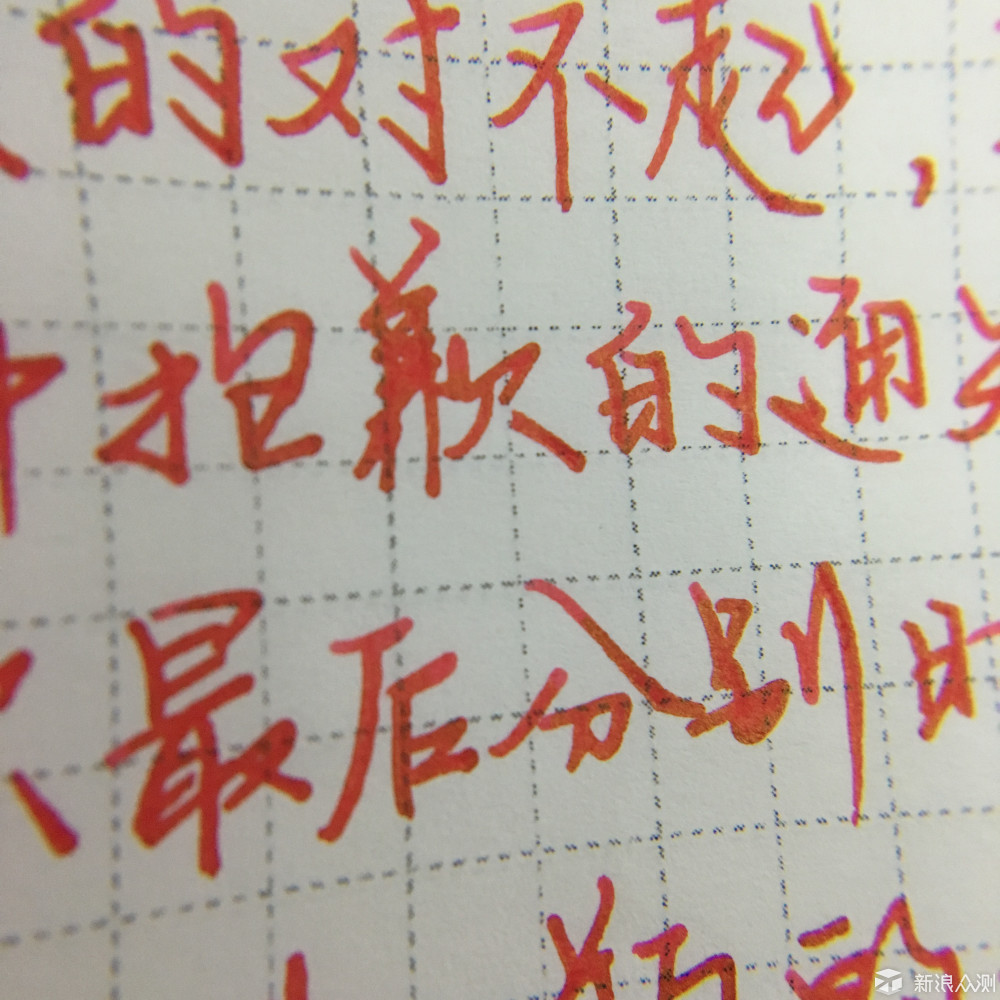 的对不起，
抱歉的通
最后分别时
的
新浪众测